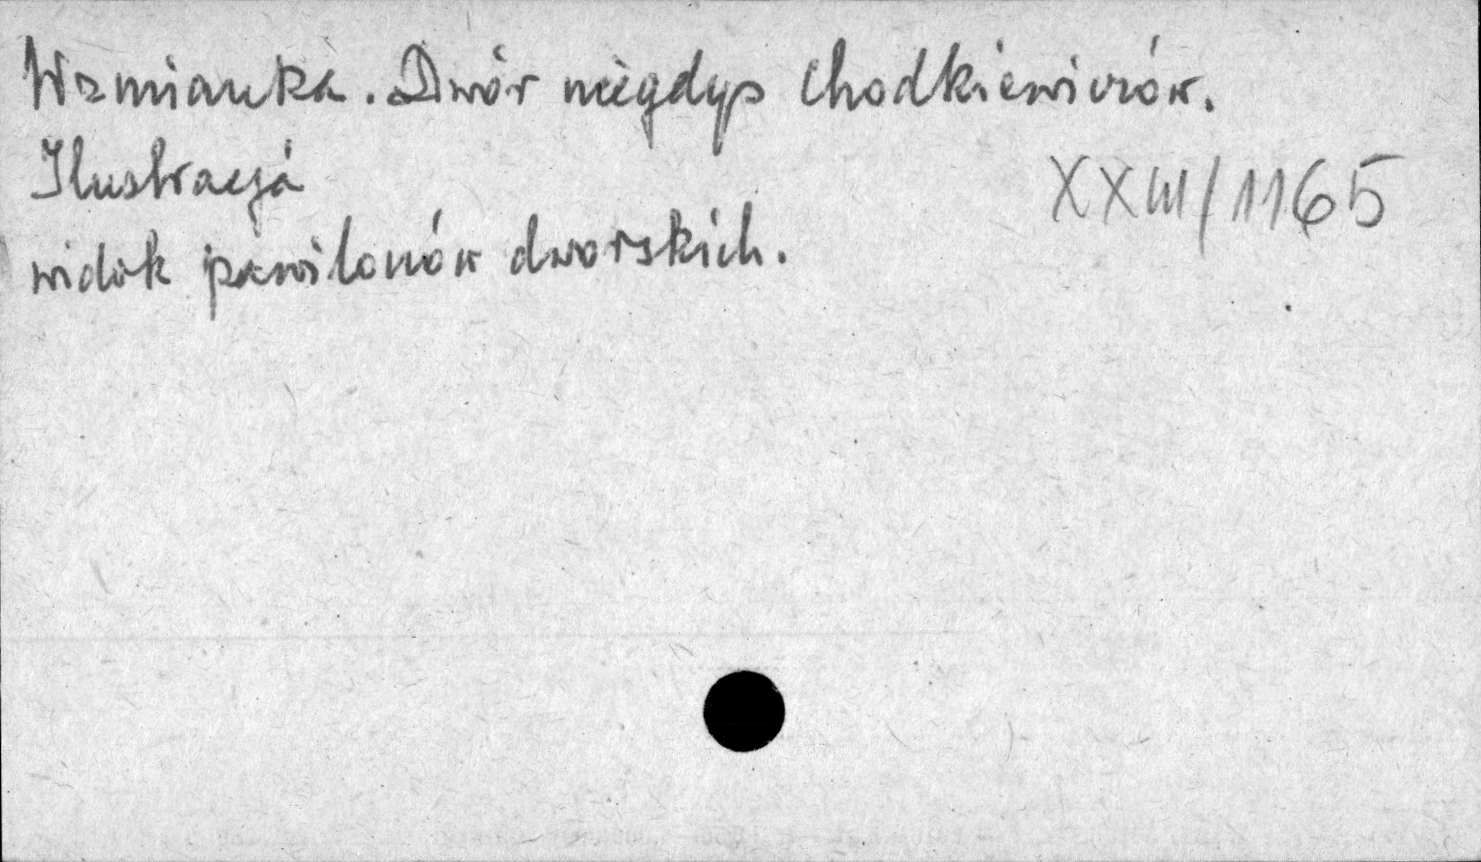 Wzmianka. Dwór niegdyś Chodkiewiczów.
Ilustracja
XXIII/1165
widok pawilonów dworskich.